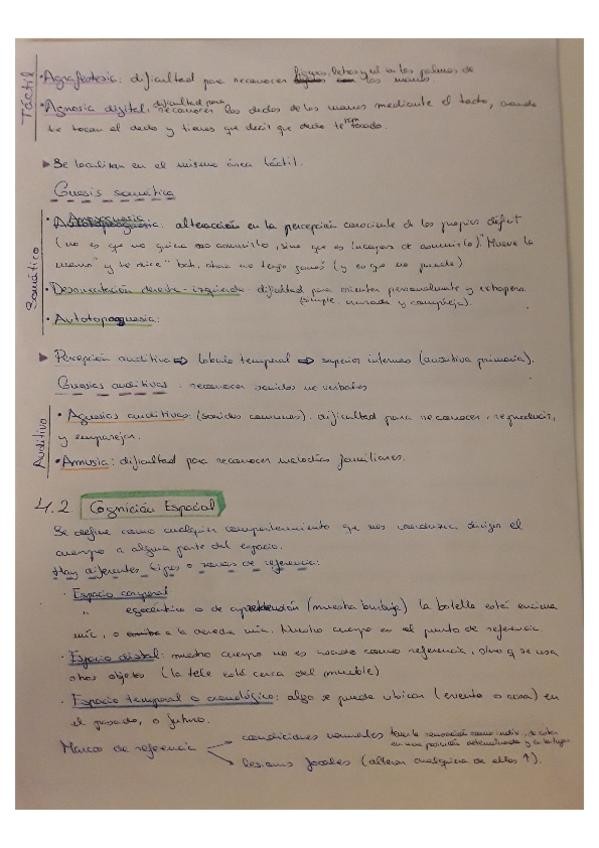 Táctil
• Agrafestesia: dificultad para reconocer figuras, letras y nº en las palmas de las manos
• Agnosia digital: dificultad para reconocer los dedos de las manos mediante el tacto, cuando
te tocan el dedo y tienes que decir que dedo te han tocado.
▶ Se localizan en el mismo área táctil.
Gnosis somática
Somático
• Anosognosia: alteración en la percepción consciente de los propios déficit
(no es que no quiera asumirlo, sino que es incapaz de asumirlo). "Mueve la
mano" y te dice "bah, ahora no tengo ganas" (y es que no puede)
• Desorientación derecha - izquierda: dificultad para orientar personalmente y
(simple, cruzada y compleja).
• Autotopagnosia:
▶ Percepción auditiva ⇒ lóbulo temporal ⇒ superior interno (auditiva primaria).
Gnosias auditivas: reconocer sonidos no verbales
Auditivo
• Agnosias auditivas: (sonidos comunes). dificultad para reconocer, reproducir,
y emparejar.
• Amusia: dificultad para reconocer melodías familiares.
4.2 Cognición Espacial
Se define como cualquier comportamiento que nos conduzca dirigir el
cuerpo a alguna parte del espacio.
Hay diferentes tipos o zonas de referencia:
· Espacio corporal
" egocéntrico o de aprehensión (nuestra burbuja) la botella está encima
mía, o a la derecha mía. Nuestro cuerpo es el punto de referencia.
· Espacio distal: nuestro cuerpo no es usado como referencia, sino que se usa
otros objetos (la tele está cerca del mueble)
· Espacio temporal o cronológico: algo se puede ubicar (evento o cosa) en
el pasado, o futuro.
Marcos de referencia
condiciones normales tener la sensación como indiv. de estar
en una posición determinada y
lesiones focales (alteran cualquiera de ellos ↑).